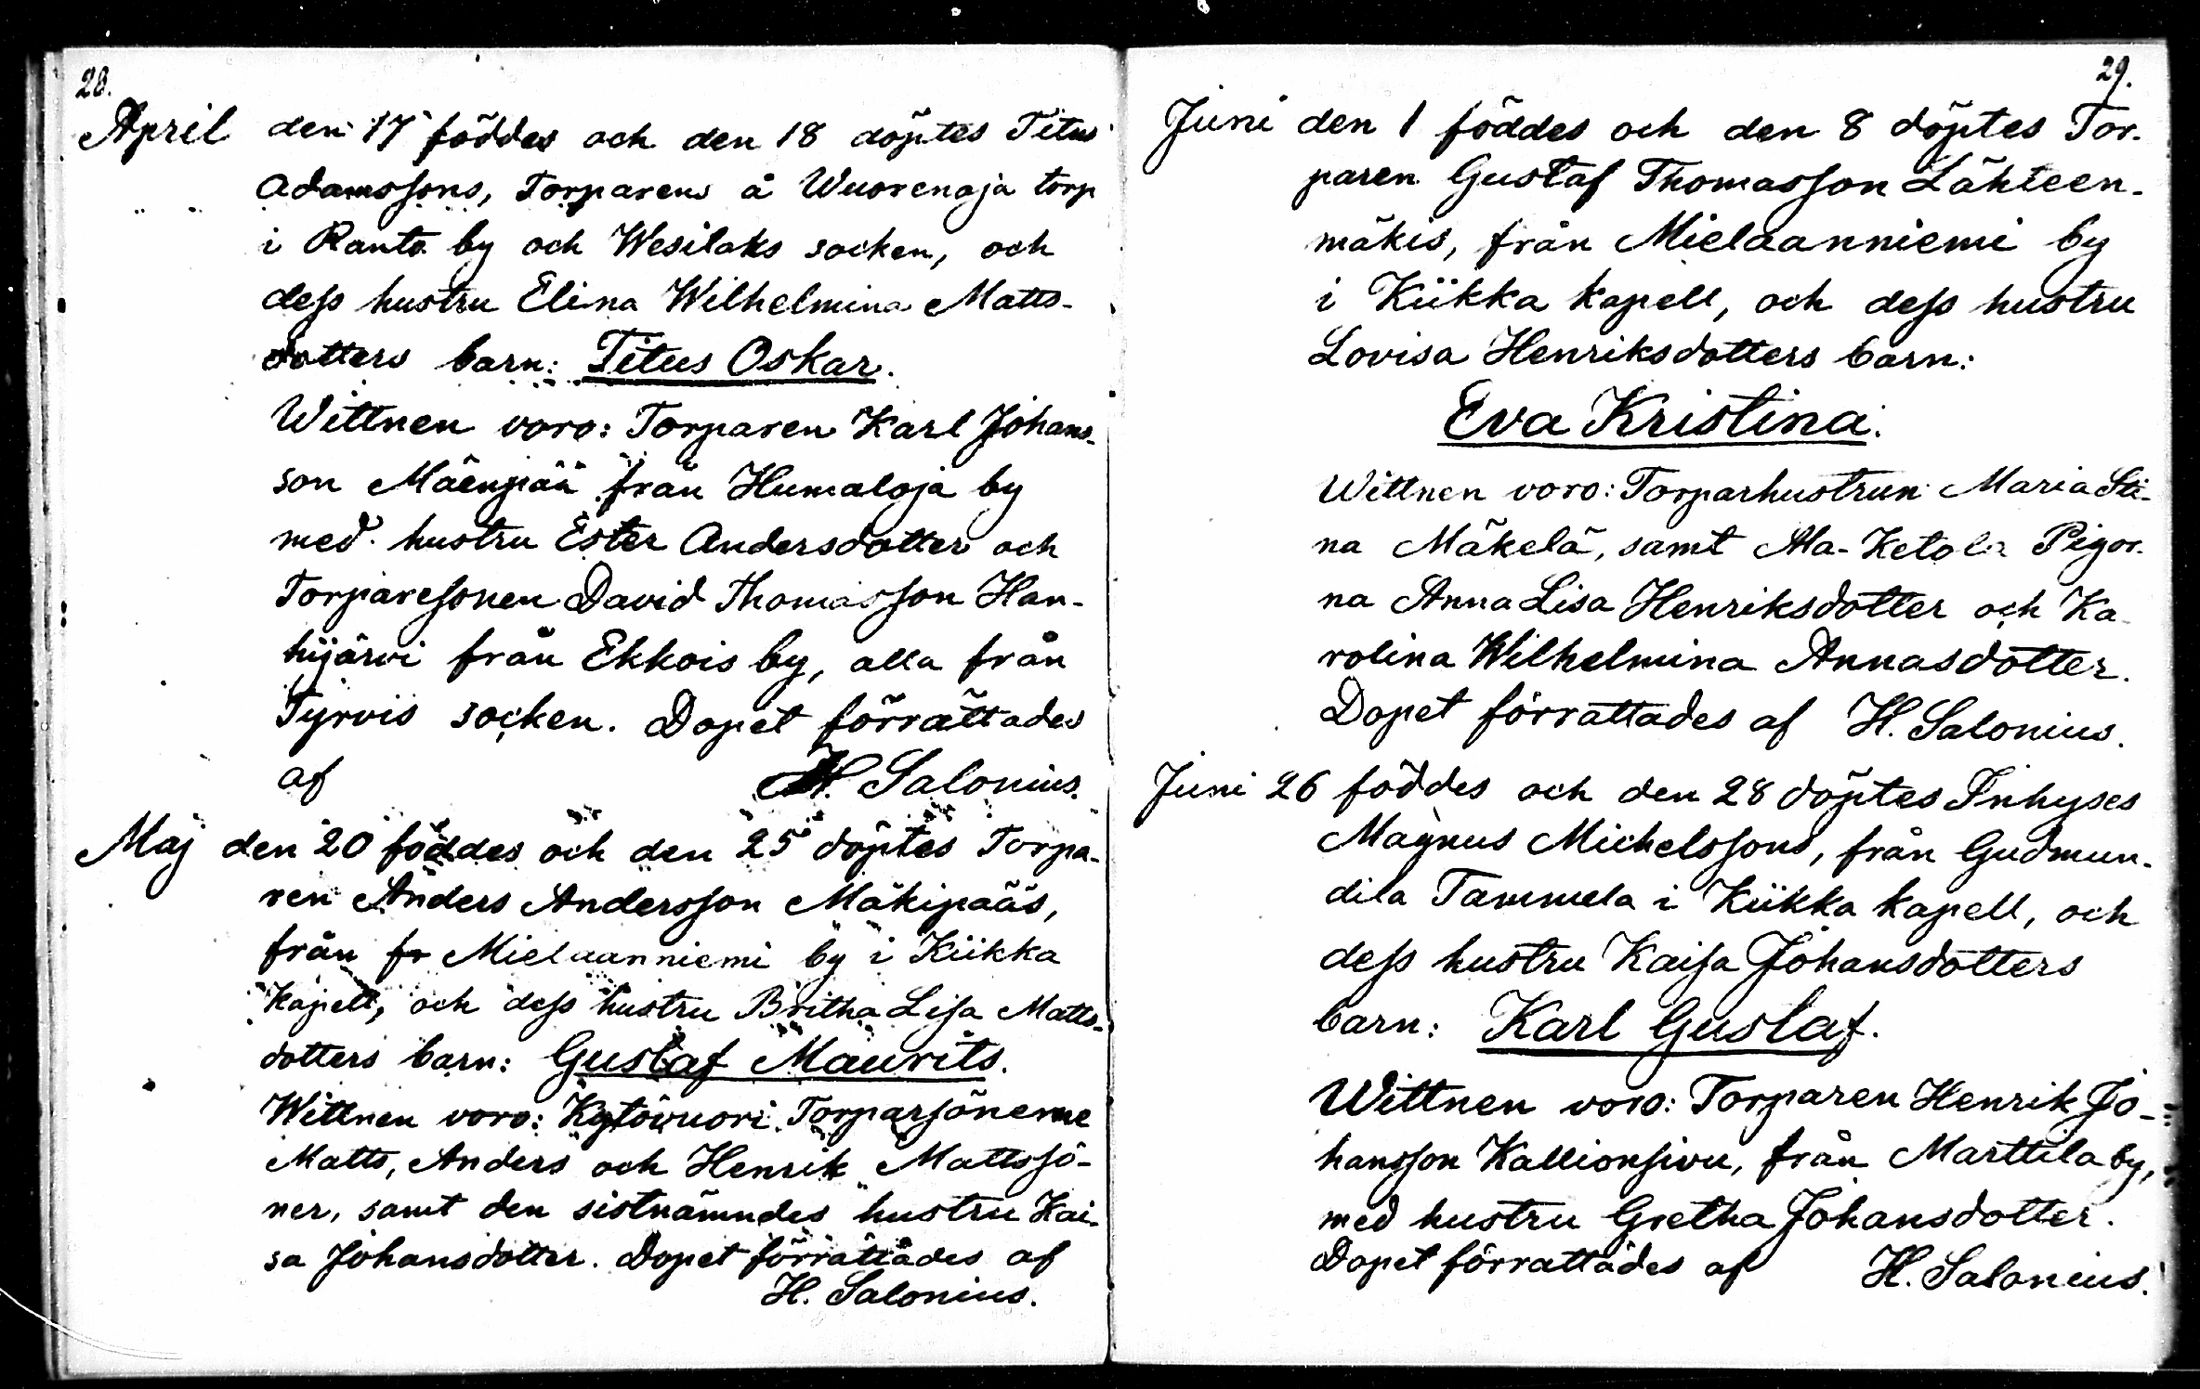 28.
April den 17 föddes och den 18 döptes Titus
Adamssons, Torparens å Wuorenoja torp
i Ranta by och Wesilaks socken, och
dess hustru Elina Wilhelmina Matts-
dotters barn: Titus Oskar.
Wittnen voro: Torparen Karl Johans-
son Mäenpää från Humaloja by
med hustru Ester Andersdotter och
Torparesonen David Thomasson Han-
hijärvi från Ekkois by, alla från
Tyrvis socken. Dopet förrättades
af H. Salonius.
Maj den 20 föddes och den 25 döptes Torpa-
ren Anders Andersson Mäkipääs,
från fr Mielaanniemi by i Kiikka
Kapell, och dess hustru Britha Lisa Matts-
dotters barn: Gustaf Maurits.
Wittnen voro: Kytövuori Torparsönerne
Matts, Anders och Henrik Mattssö-
ner, samt den sistnämndes hustru Kai-
sa Johansdotter. Dopet förrättades af
H. Salonius.
29.
Juni den 1 föddes och den 8 döptes Tor-
paren Gustaf Thomasson Lähteen-
mäkis, från Mielaanniemi by
i Kiikka kapell, och dess hustru
Lovisa Henriksdotters barn:
Eva Kristina.
Wittnen voro: Torparhustrun Maria Sti-
na Mäkelä, samt Ala-Ketola Pigor-
na Anna Lisa Henriksdotter och Ka-
rolina Wilhelmina Annasdotter.
Dopet förrättades af H. Salonius.
Juni 26 föddes och den 28 döptes Inhyses
Magnus Michelssons, från Gudmun-
dila Tammela i Kiikka kapell, och
dess hustru Kaisa Johansdotters
barn: Karl Gustaf.
Wittnen voro: Torparen Henrik Jo-
hansson Kallionsivu, från Marttila by,
med hustru Gretha Johansdotter.
Dopet förrättades af H. Salonius.